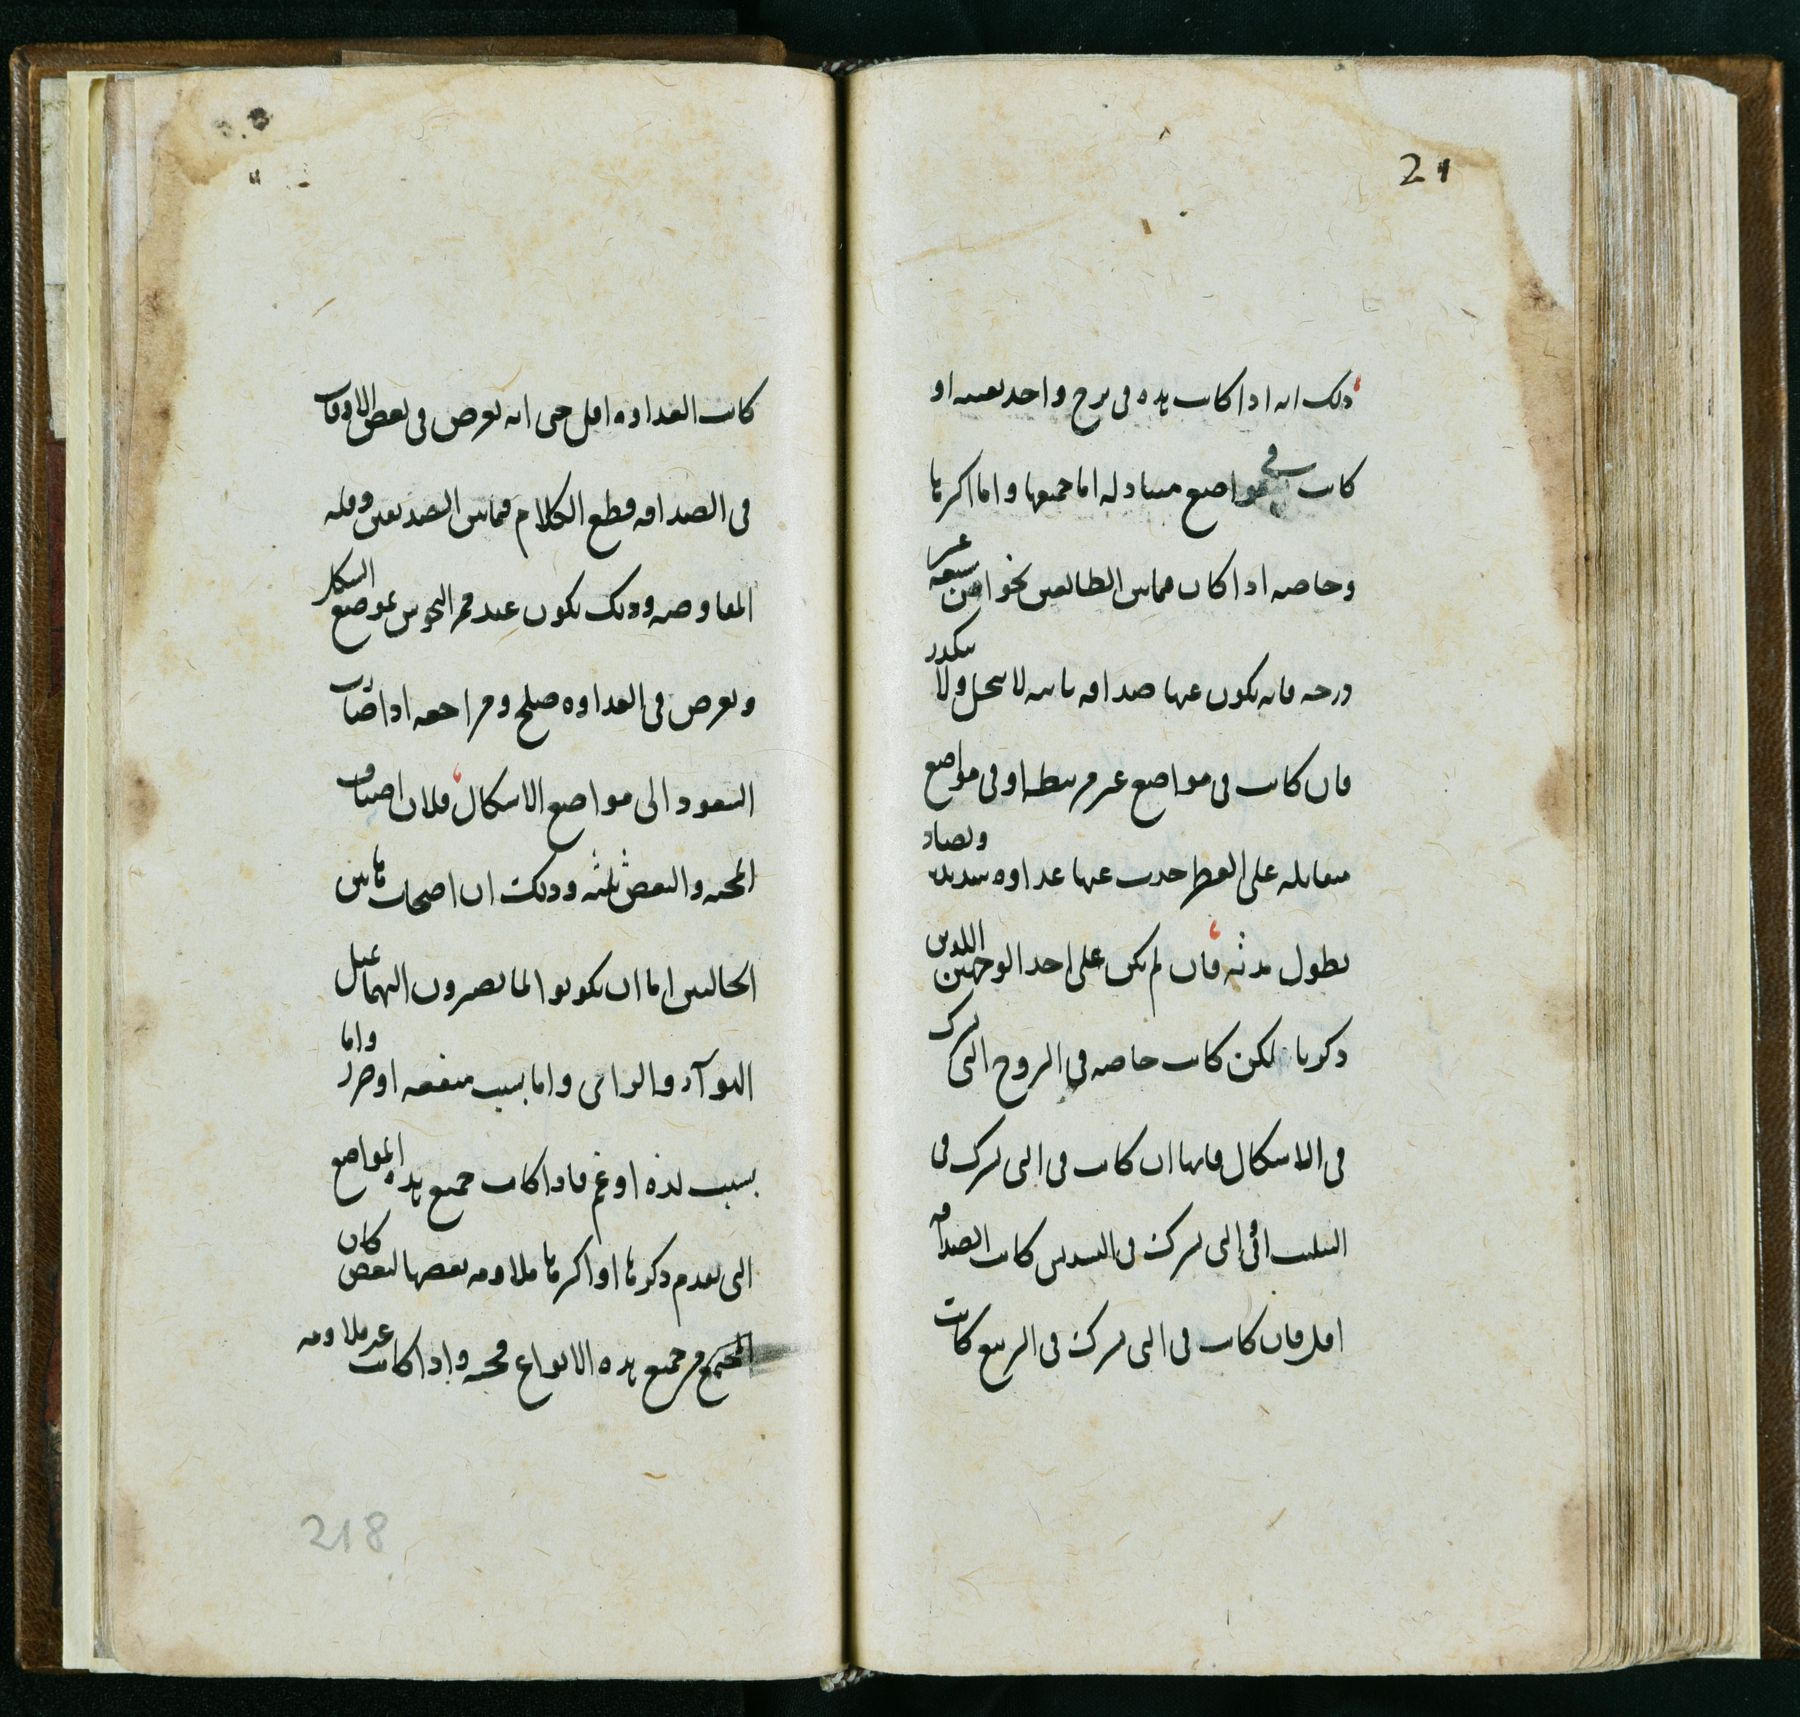 21
ذلك انه اذا كانت هذه فى برج واحد بعينه او
كانت فى مواضع متبادلة اما جميعها واما اكثرها
وخاصة اذا كان فيما بين الطالعين نحوا من سبعة عشر
درجة فانه يكون عنها صداقة ثابتة لا تنحل ولا تتكدر
فان كانت فى مواضع غير مرتبطة او فى مواضع
متقابلة على القطر حدث عنها عداوة شديدة وتضاد
تطول مدته فان لم تكن على احد الوجهين اللذين
ذكرنا لكن كانت خاصة فى البروج التى تشترك
فى الاشكال فانها ان كانت فى التى تشترك فى
التثليث او فى التى تشترك فى التسديس كانت الصداقة
اقل فان كانت فى التى تشترك فى التربيع كانت
كانت العداوة اقل حتى انه يعرض فى بعض الاوقات
فى الصداقة قطع الكلام فيما بين الصديقين وقلة
المفاوضة وذلك يكون عند ممر النحوس بموضع الشكل
ويعرض فى العداوة صلح ومراجعة اذا صارت
السعود الى مواضع الاشكال فلان اصناف
المحبة والبغض ثلثة وذلك ان اصحاب هاتين
الحالتين اما ان يكونوا انما يصيرون اليهما من قبل
التوآد والراى واما بسبب منفعة او ضرر واما
بسبب لذة او غم فاذا كانت جميع هذه المواضع
التى تقدم ذكرها او اكثرها ملاومة بعضها لبعض كان
المجتمع من جميع هذه الانواع محبة واذا كانت غير ملاومة
218